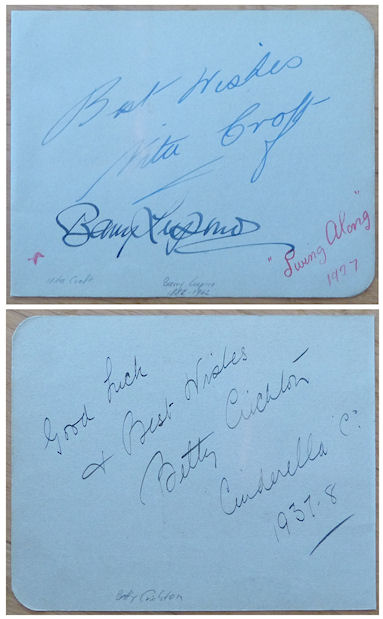 Best Wishes
Nita Croft
Barry Lupino
"Swing Along"
1937
Nita Croft
Barry Lupino
Good Luck
& Best Wishes
Betty Crichton
Cinderella
1937-8
Betty Crichton